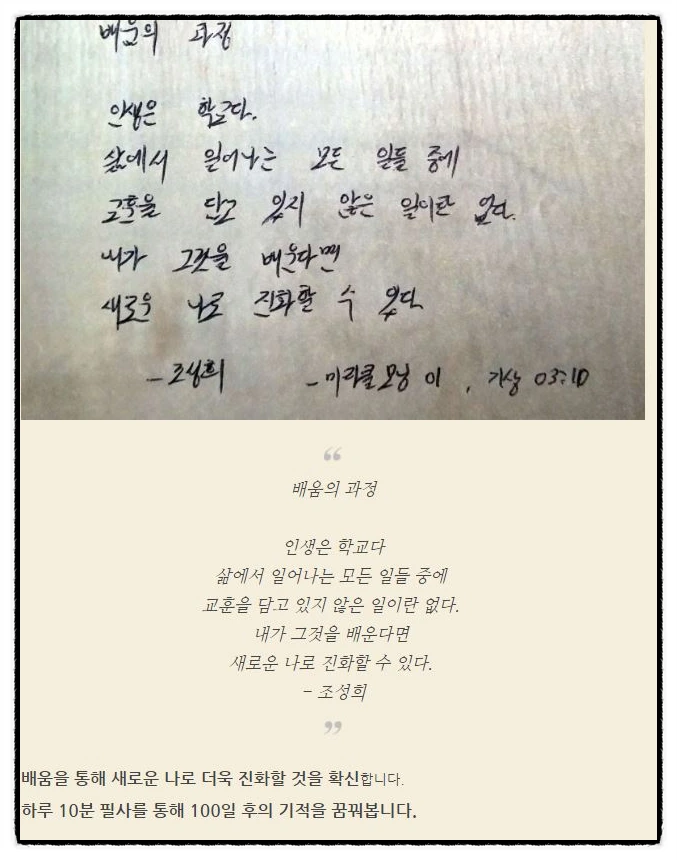 배움의 과정
인생은 학교다.
삶에서 일어나는 모든 일들 중에
교훈을 담고 있지 않은 일이란 없다.
내가 그것을 배운다면
새로운 나로 진화할 수 있다
- 조성희 - 미라클모닝 01, 기상 03:10
“
배움의 과정
인생은 학교다
삶에서 일어나는 모든 일들 중에
교훈을 담고 있지 않은 일이란 없다.
내가 그것을 배운다면
새로운 나로 진화할 수 있다.
- 조성희
”
배움을 통해 새로운 나로 더욱 진화할 것을 확신합니다.
하루 10분 필사를 통해 100일 후의 기적을 꿈꿔봅니다.